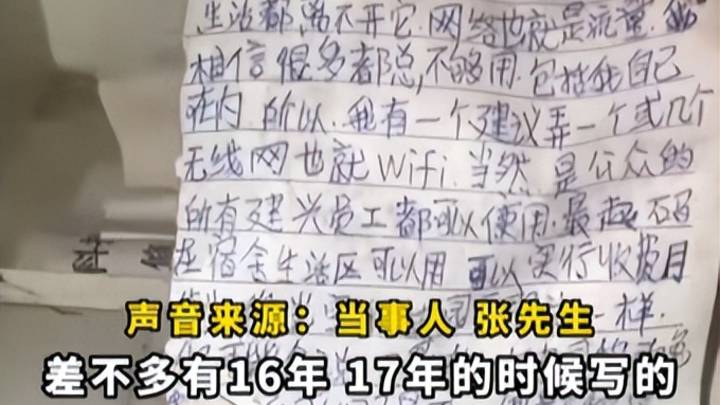 生活都离不开它.网络也就是流量.我
相信很多都总不够用.包括我自己
在内.所以.我有一个建议弄一个或几个
无线网也就Wifi.当然.是公众的
所有建兴员工都可以使用.最起码
在宿舍生活区可以用 可以实行收费月
一样.
声音来源：当事人 张先生
差不多有16年 17年的时候写的